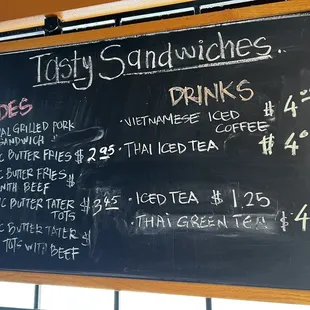 Tasty Sandwiches..
DES
AL GRILLED PORK
SANDWICH
C BUTTER FRIES $2.95
C BUTTER FRIES $
WITH BEEF
C BUTTER TATER $3.45
TOTS
C BUTTER TATER $
TOTS WITH BEEF
DRINKS
· VIETNAMESE ICED $4
COFFEE
· THAI ICED TEA $4
· ICED TEA $1.25
· THAI GREEN TEA $4